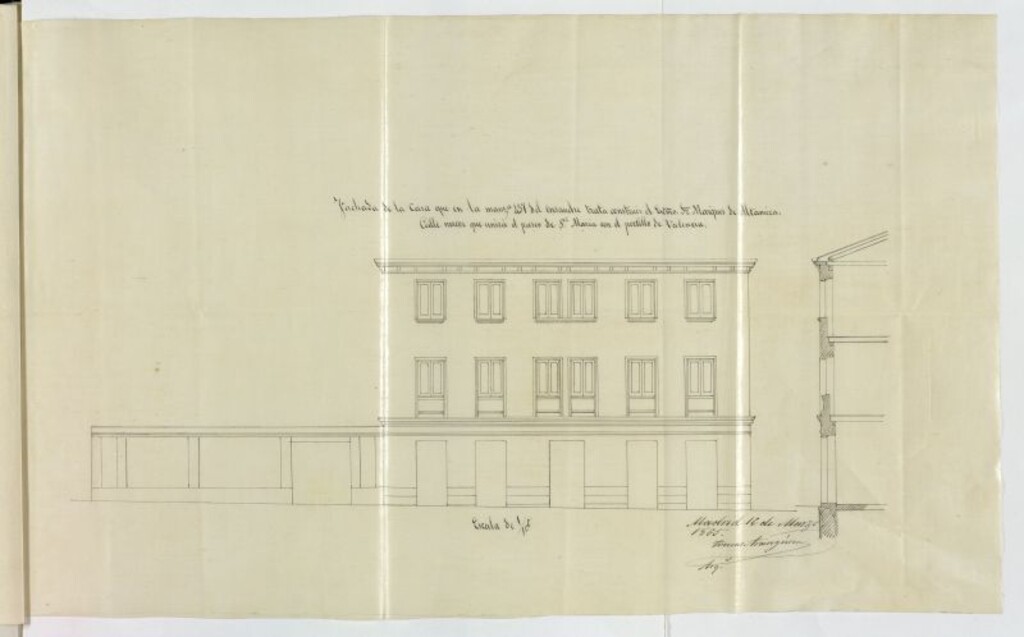 Fachada de la Casa que en la manz.ª 157 del ensanche trata construir el Señor Marques de Altamira.
Calle nueva que unirá el paseo de S.ta Maria con el portillo de Valencia.
Escala de
Madrid 16 de Marzo
1865.
Arq.to